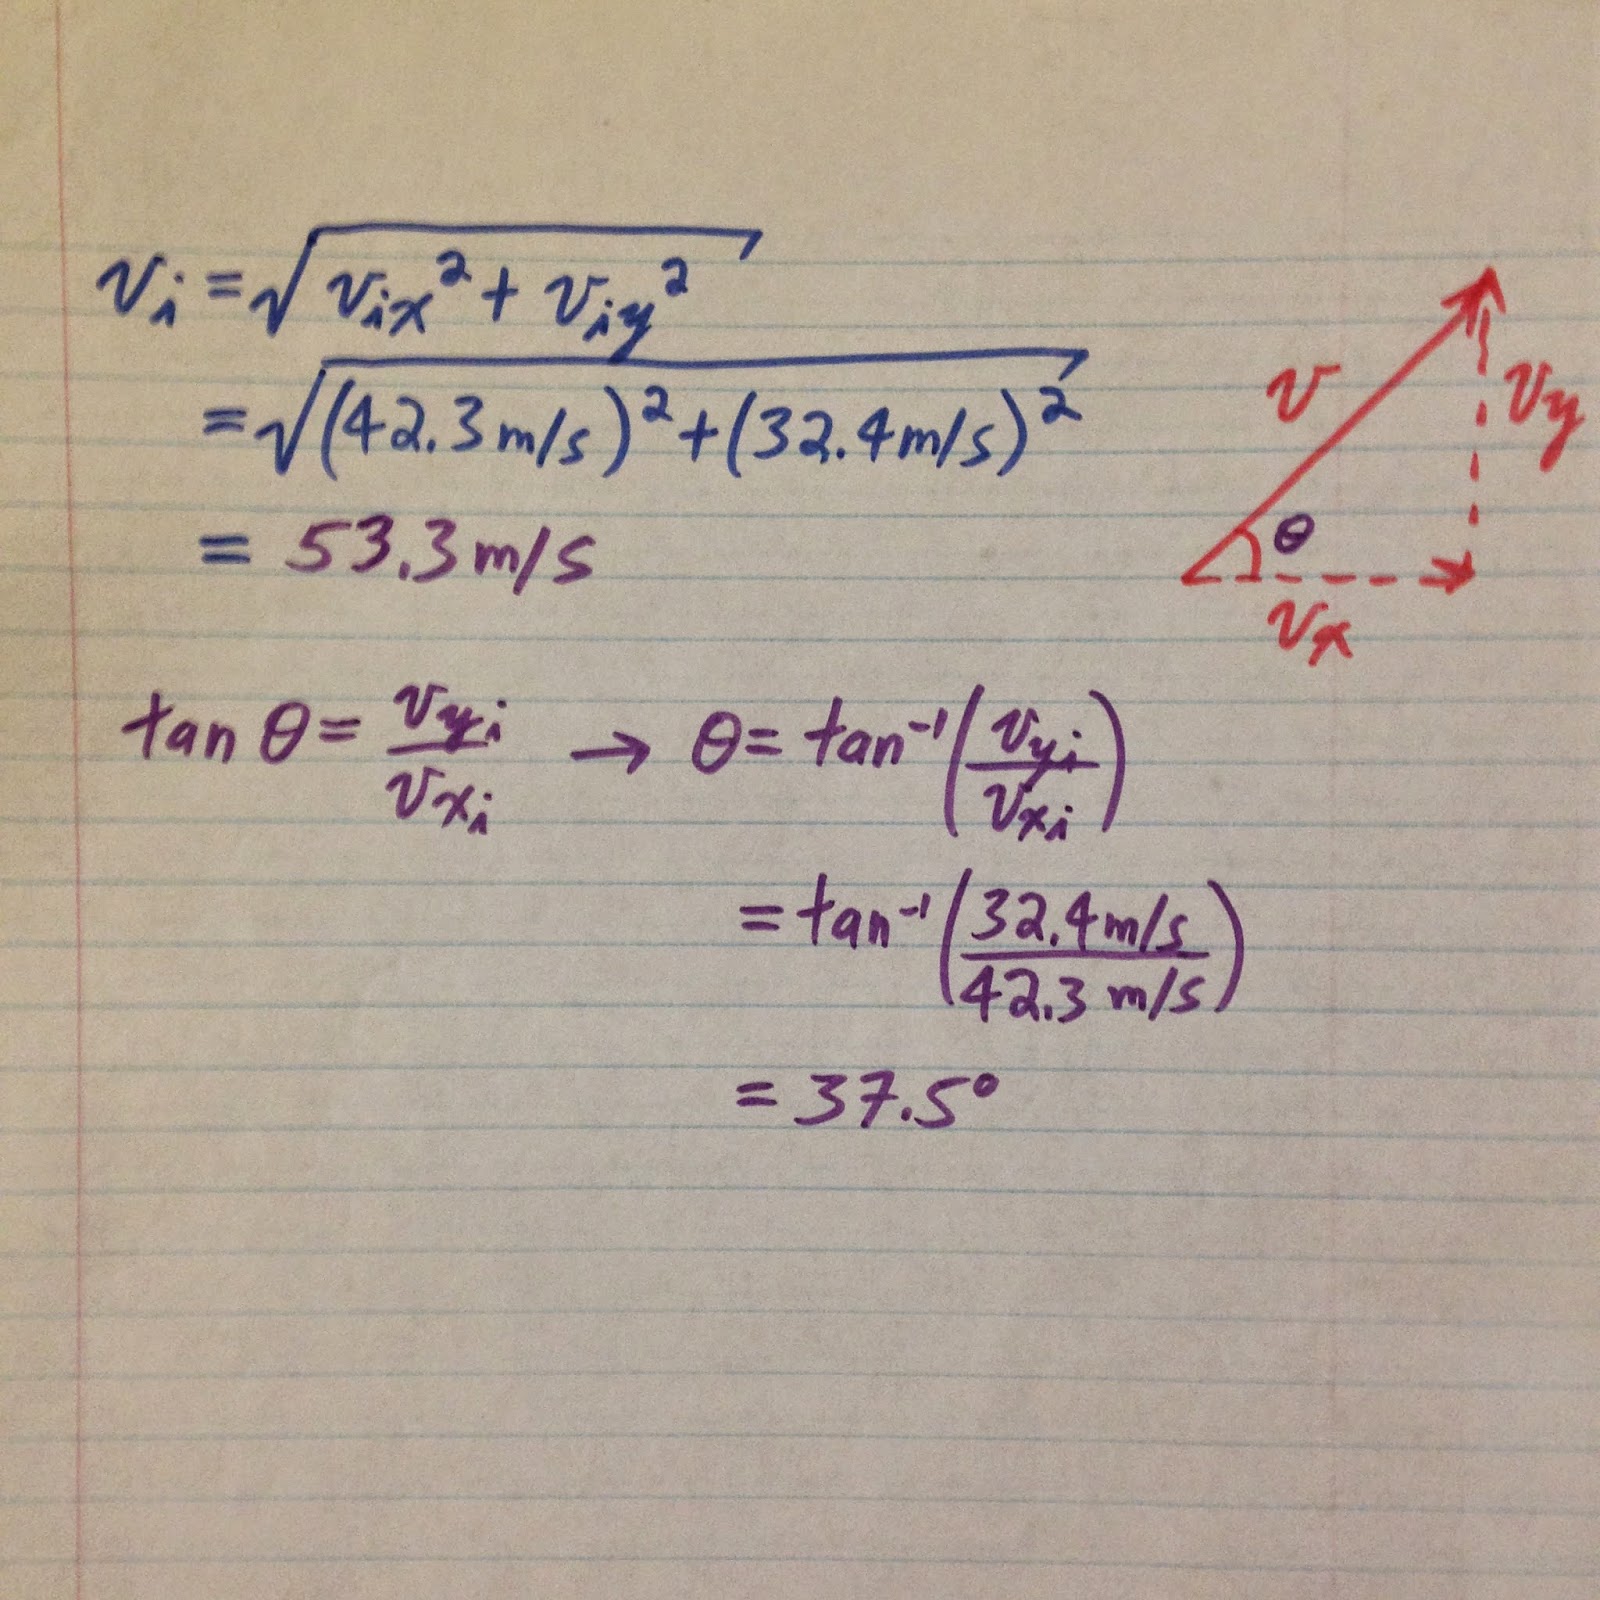 vᵢ = √(vᵢₓ² + vᵢy²)
= √((42.3 m/s)² + (32.4 m/s)²)
= 53.3 m/s
v
vy
θ
vx
tan θ = vyᵢ/vxᵢ → θ = tan⁻¹(vyᵢ/vxᵢ)
= tan⁻¹(32.4 m/s / 42.3 m/s)
= 37.5°